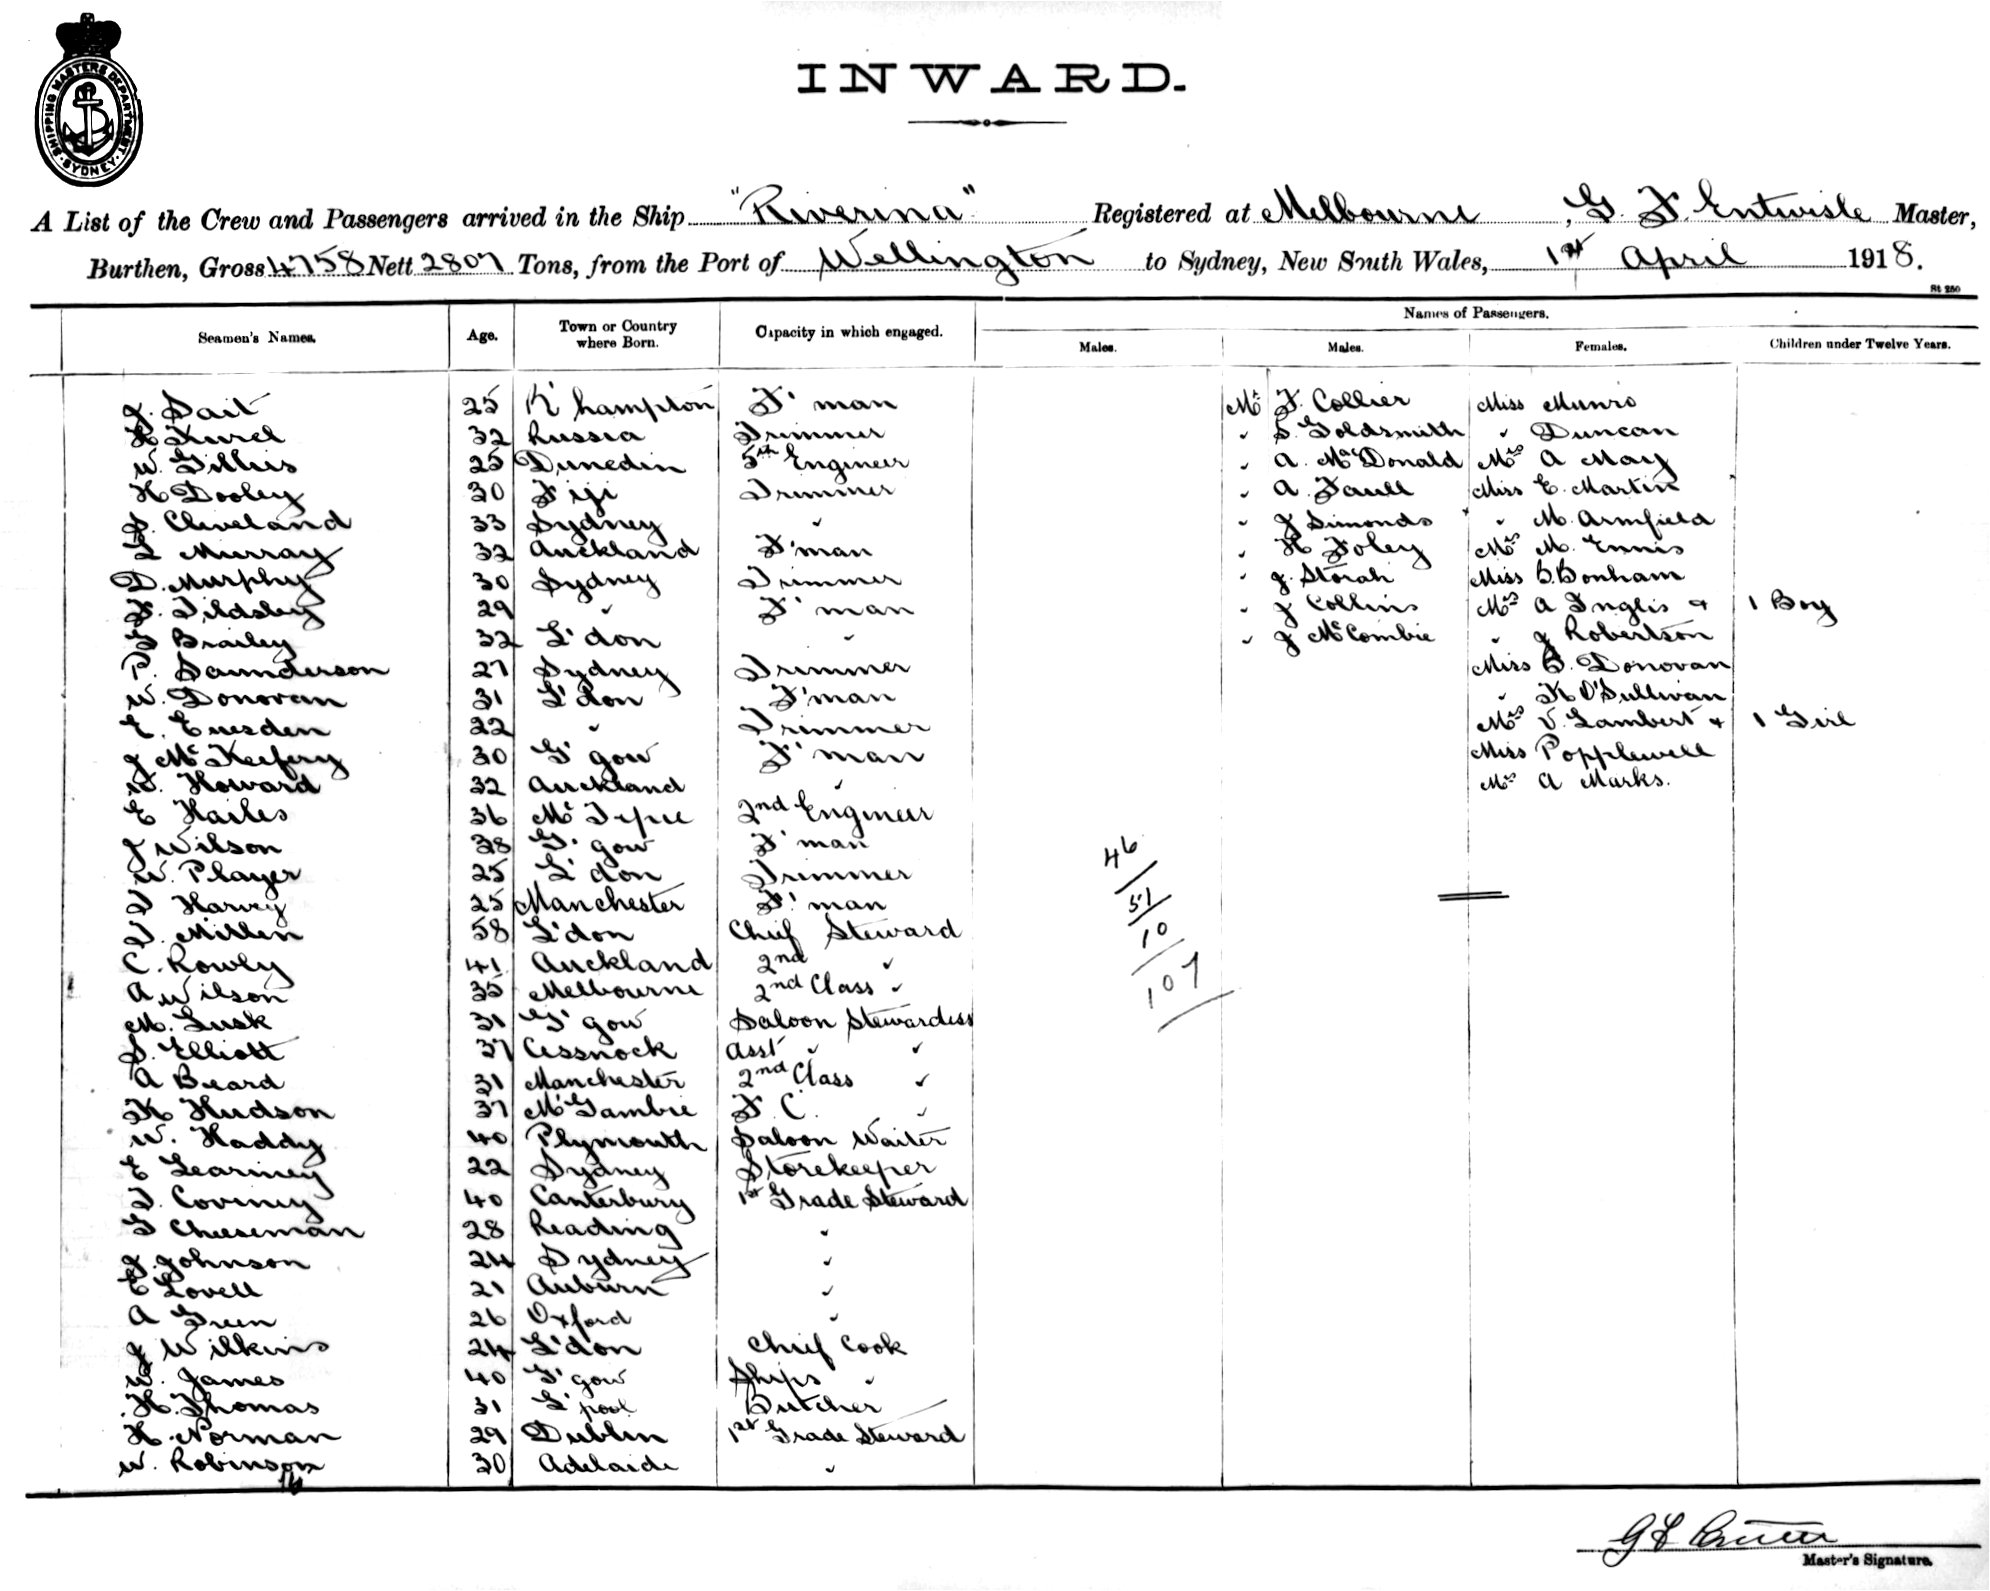 SHIPPING MASTERS DEPARTMENT · SYDNEY ·
INWARD.
A List of the Crew and Passengers arrived in the Ship "Riverina" Registered at Melbourne, G. F. Entwisle Master,
Burthen, Gross 4758 Nett 2807 Tons, from the Port of Wellington to Sydney, New South Wales, 1st April 1918.
St 250
Seamen's Names. Age. Town or Country where Born. Capacity in which engaged. Names of Passengers.
Males. Males. Females. Children under Twelve Years.
J. Sait 25 R'hampton F'man Mr F. Collier Miss Munro
H 32 Russia Trimmer " S. Goldsmith " Duncan
W. Gillies 25 Dunedin 5th Engineer " A. McDonald Mrs A May
H Dooley 30 Fiji Trimmer " A. Faull Miss E. Martin
S. Cleveland 33 Sydney " " J Simonds " M. Armfield
L Murray 32 Auckland F'man " H Foley Mrs M. Ennis
D. Murphy 30 Sydney Trimmer " J. Storah Miss B. Bonham
F. Tildsley 29 " F'man " J Collins Mrs A Inglis + 1 Boy
G Brailey 32 L'don " " J McCombie " J Robertson
P. Saunderson 27 Sydney Trimmer Miss B. Donovan
W. Donovan 31 L'don F'man " K O'Sullivan
E. Euesden 22 " Trimmer Mrs V. Lambert + 1 Girl
J McKeefery 30 G'gow F'man Miss Popplewell
W. Howard 32 Auckland " Mrs A Marks.
E Hailes 36 Mt 2nd Engineer
J Wilson 38 G'gow F'man
W. Player 25 L'don Trimmer
T Harvey 25 Manchester F'man
T. Millen 58 L'don Chief Steward
C. Rowly 41 Auckland 2nd "
A Wilson 35 Melbourne 2nd Class "
M. Lusk 31 G'gow Saloon Stewardess
S. Elliott 37 Cessnock Asst " "
A Beard 31 Manchester 2nd Class "
K Hudson 37 Mt Gambie F. C. "
W. Haddy 40 Plymouth Saloon Waiter
E Learmey 22 Sydney Storekeeper
T. Coveney 40 Canterbury 1st Grade Steward
G Cheeseman 28 Reading "
J. Johnson 24 Sydney "
E Lovell 21 Auburn "
A Green 26 Oxford "
J Wilkins 24 L'don Chief Cook
W. James 40 G'gow Ships "
H. Thomas 31 L'pool Butcher
H. Norman 29 Dublin 1st Grade Steward
W. Robinson 30 Adelaide "
46
51
10
107
Master's Signature.